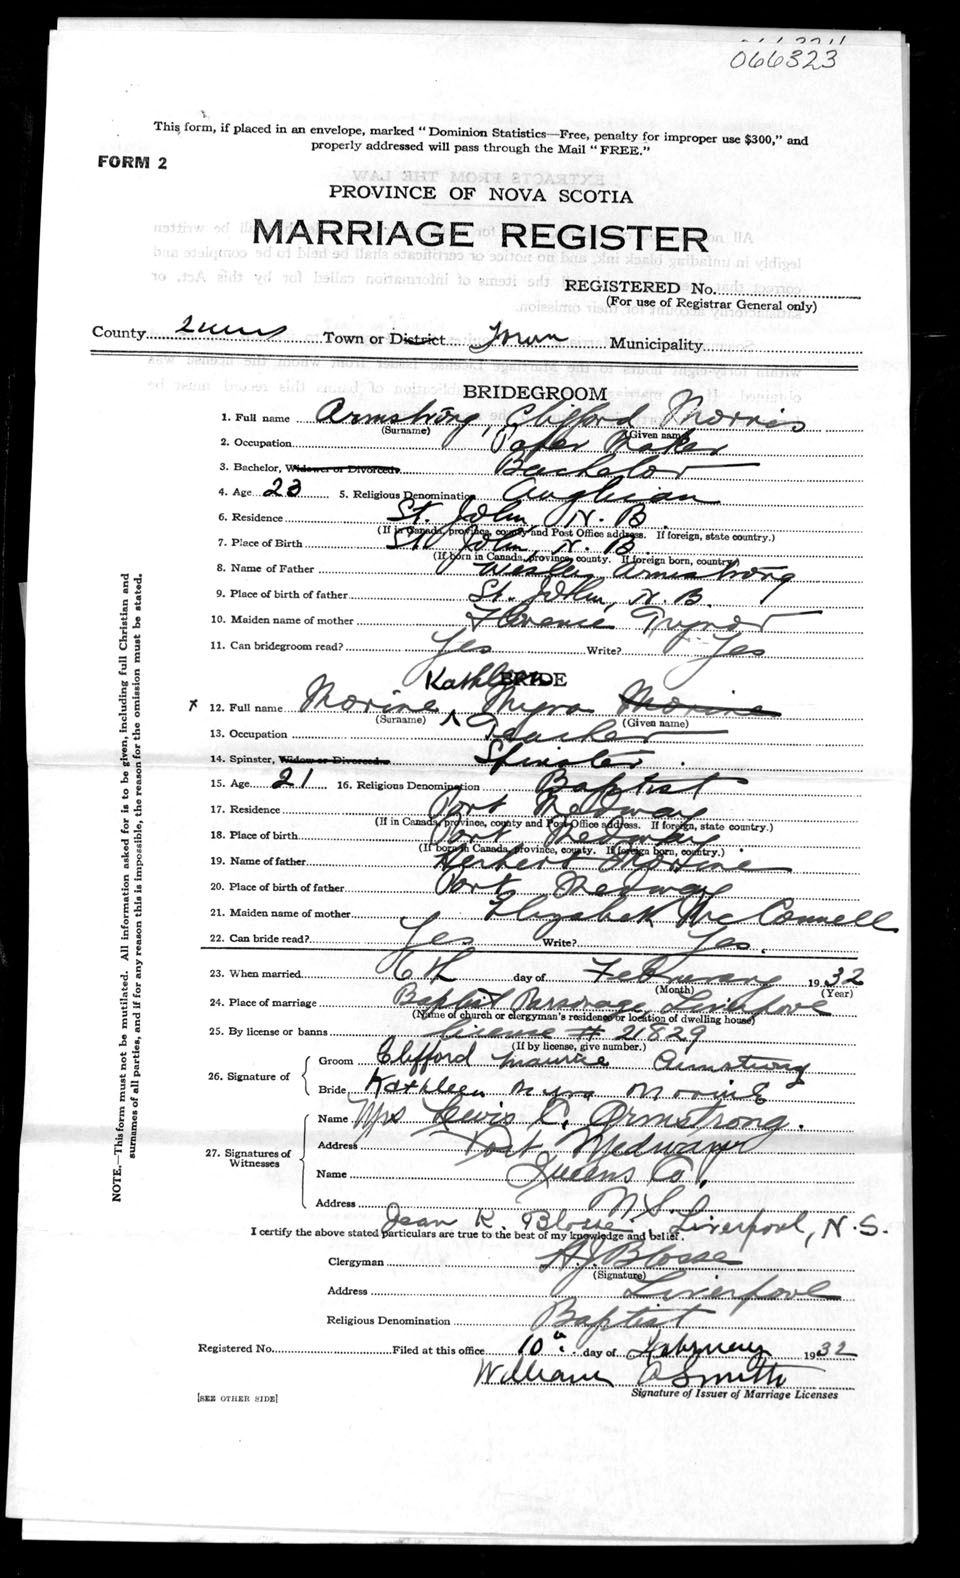 066323
This form, if placed in an envelope, marked "Dominion Statistics—Free, penalty for improper use $300," and
properly addressed will pass through the Mail "FREE."
FORM 2
PROVINCE OF NOVA SCOTIA
MARRIAGE REGISTER
REGISTERED No.
(For use of Registrar General only)
County Queens Town or District Town Municipality
BRIDEGROOM
1. Full name Armstrong, Clifford Morris
(Surname) (Given name)
2. Occupation Paper Maker
3. Bachelor, Widower or Divorced Bachelor
4. Age 23 5. Religious Denomination Anglican
6. Residence St. John, N. B.
(If in Canada, province, county and Post Office address. If foreign, state country.)
7. Place of Birth St. John, N. B.
(If born in Canada, province, county. If foreign born, country)
8. Name of Father Wesley Armstrong
9. Place of birth of father St. John, N. B.
10. Maiden name of mother Florence Trynor
11. Can bridegroom read? Yes Write? Yes
BRIDE
Kathleen
x 12. Full name Morine Myra Morine
(Surname) (Given name)
13. Occupation Teacher
14. Spinster, Widow or Divorcee Spinster.
15. Age 21 16. Religious Denomination Baptist
17. Residence Port Medway
(If in Canada, province, county and Post Office address. If foreign, state country.)
18. Place of birth Port Medway
(If born in Canada, province, county. If foreign born, country.)
19. Name of father Herbert Morine
20. Place of birth of father Port Medway
21. Maiden name of mother Elizabeth McConnell
22. Can bride read? Yes Write? Yes.
23. When married 6th day of February 1932
(Month) (Year)
24. Place of marriage Baptist Parsonage, Liverpool
(Name of church or clergyman's residence or location of dwelling house)
25. By license or banns license # 2829
(If by license, give number.)
26. Signature of
Groom Clifford Maurice Armstrong
Bride Kathleen Myra Morine
27. Signatures of Witnesses
Name Mrs Lewis C. Armstrong.
Address Port Medway
Name Queens Co.
Address N.S.
Jean K. Blosse, Liverpool, N.S.
I certify the above stated particulars are true to the best of my knowledge and belief.
Clergyman A.J. Blosse
(Signature)
Address Liverpool
Religious Denomination Baptist
Registered No. Filed at this office 10th day of February 1932
William A Smith
Signature of Issuer of Marriage Licenses
[SEE OTHER SIDE]
NOTE.—This form must not be mutilated. All information asked for is to be given, including full Christian and
surnames of all parties, and if for any reason this is impossible, the reason for the omission must be stated.